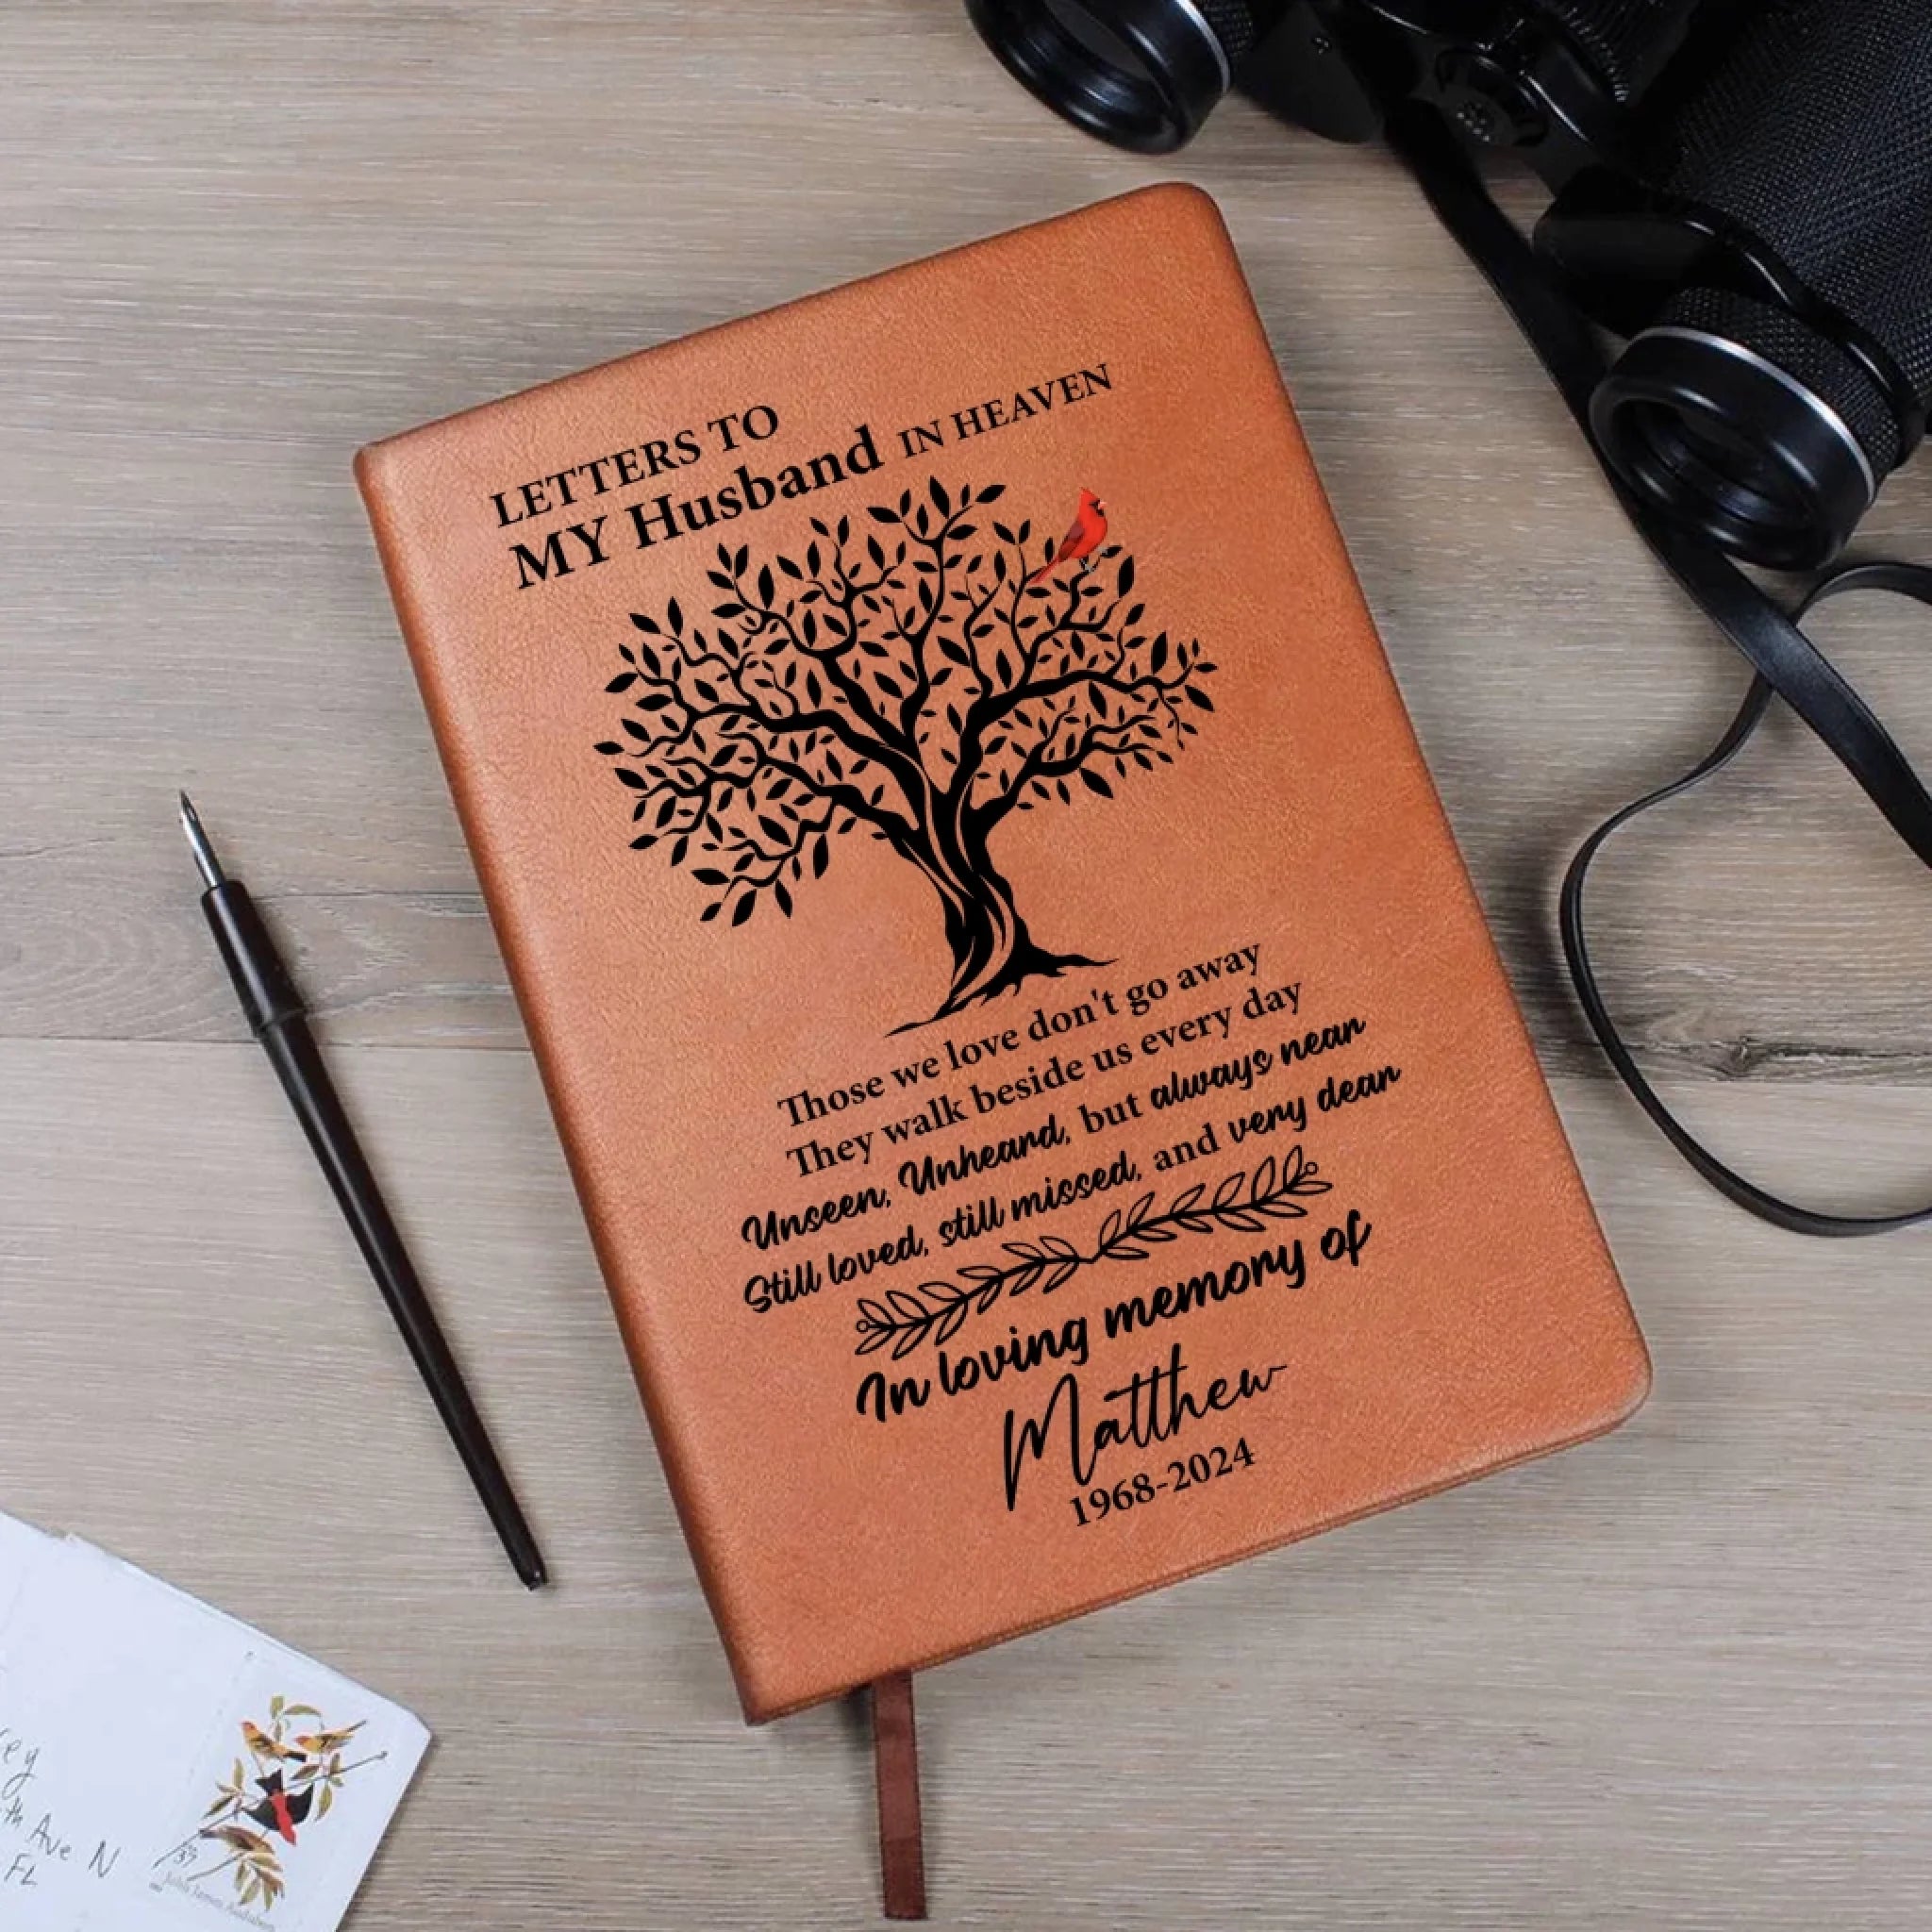 LETTERS TO
MY Husband IN HEAVEN
Those we love don't go away
They walk beside us every day
Unseen, Unheard, but always near
Still loved, still missed, and very dear
In loving memory of
Matthew
1968-2024
Ave N
FL
39